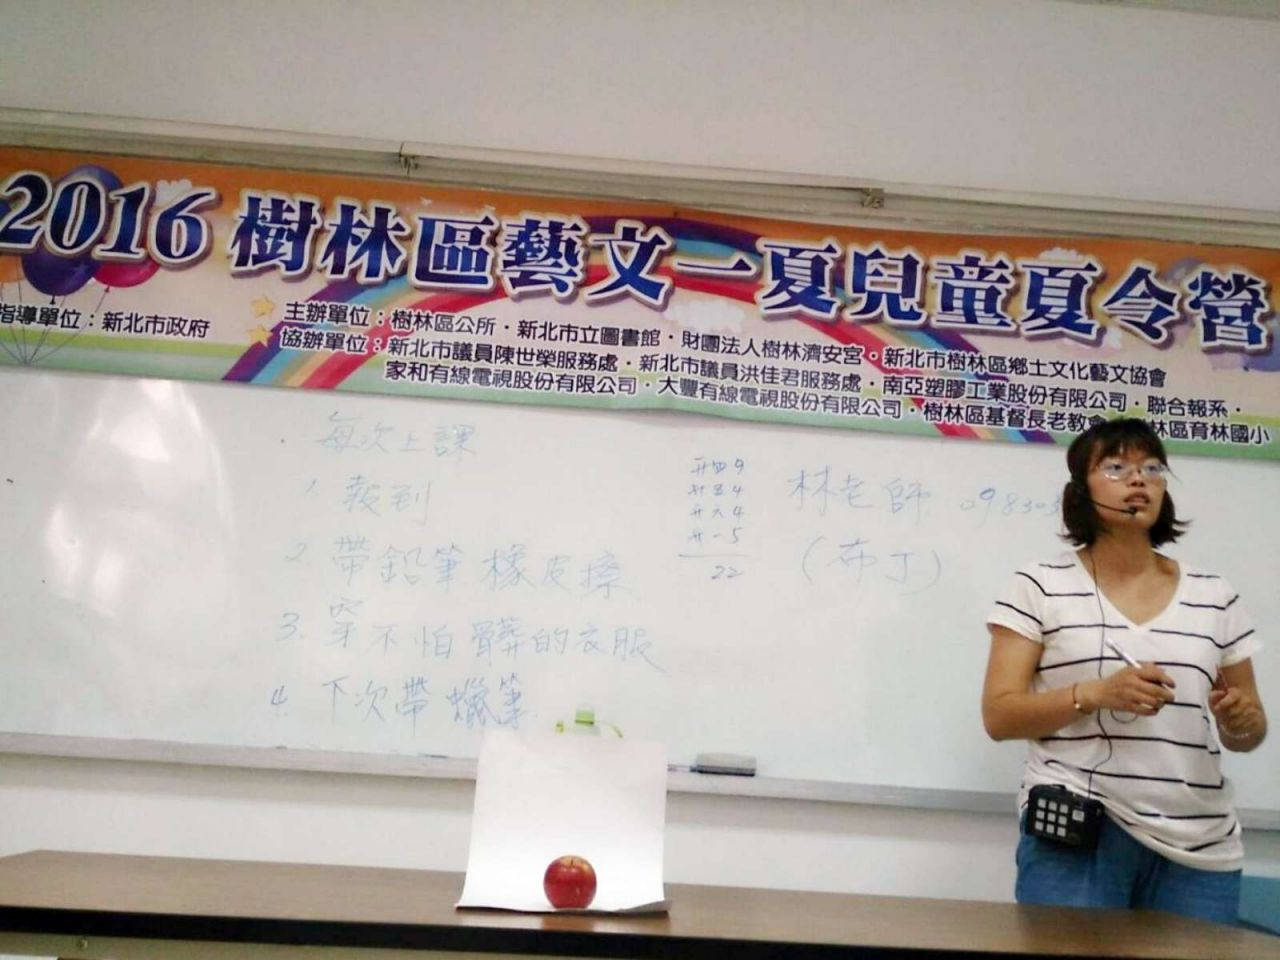 2016 樹林區藝文一夏兒童夏令營
指導單位：新北市政府
主辦單位：樹林區公所・新北市立圖書館・財團法人樹林濟安宮・新北市樹林區鄉土文化藝文協會
協辦單位：新北市議員陳世榮服務處・新北市議員洪佳君服務處・南亞塑膠工業股份有限公司・聯合報系・
家和有線電視股份有限公司・大豐有線電視股份有限公司・樹林區基督長老教會 林區育林國小
每次上課
1. 報到
2. 帶鉛筆 橡皮擦
3. 穿不怕髒的衣服
4. 下次帶 蠟筆
升四 9
升五 4
升六 4
升一 5
22
林老師 09830
(布丁)